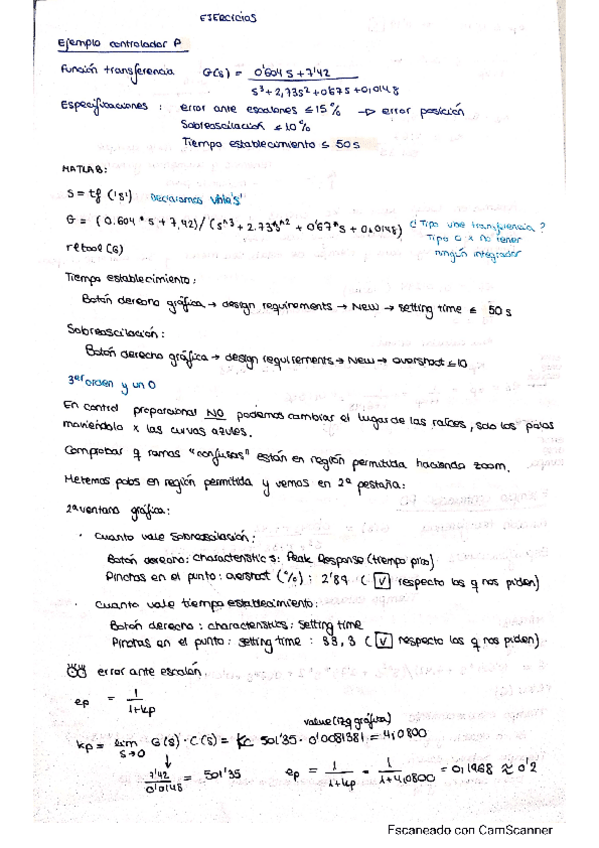 EJERCICIOS
Ejemplo controlador P
Función transferencia G(s) = 0'604 s + 7'42
s³ + 2,73s² + 0'67s + 0,0148
Especificaciones : error ante escalones ≤ 15 % → error posición
Sobreoscilación ≤ 10 %
Tiempo establecimiento ≤ 50 s
MATLAB:
s = tf ('s') Declaramos vble 's'
G = (0.604 * s + 7,42) / (s^3 + 2.73*s^2 + 0'67*s + 0.0148) ¿Tipo vne transferencia?
Tipo 0 x no tener
ningún integrador
rltool (G)
Tiempo establecimiento :
Botón derecho gráfica → design requirements → New → setting time ≤ 50 s
Sobreoscilación :
Botón derecho gráfica → design requirements → New → overshoot ≤ 10
3er orden y un 0
En control proporcional NO podemos cambiar el lugar de las raíces, solo los polos
moviéndolo x las curvas azules.
Comprobar q ramas "confusas" están en región permitida haciendo zoom.
Metemos polos en región permitida y vemos en 2ª pestaña:
2ª ventana gráfica:
· Cuanto vale sobreoscilación :
Botón derecho: characteristics: Peak Response (tiempo pico)
Pinchas en el punto: overshoot (%) : 2'89 ( V respecto los q nos piden)
· Cuanto vale tiempo establecimiento :
Botón derecho : characteristics : setting time
Pinchas en el punto : setting time : 33,3 ( V respecto los q nos piden).
error ante escalón.
ep = 1 / 1+kp
value (izq gráfica)
kp = lim s→0 G(s) · C(s) = Kc 501'35 · 0'0081381 = 4,0800
7'42 / 0'0148 = 501'35 ep = 1 / 1+kp = 1 / 1+4,0800 = 0,1968 ≈ 0'2
Escaneado con CamScanner